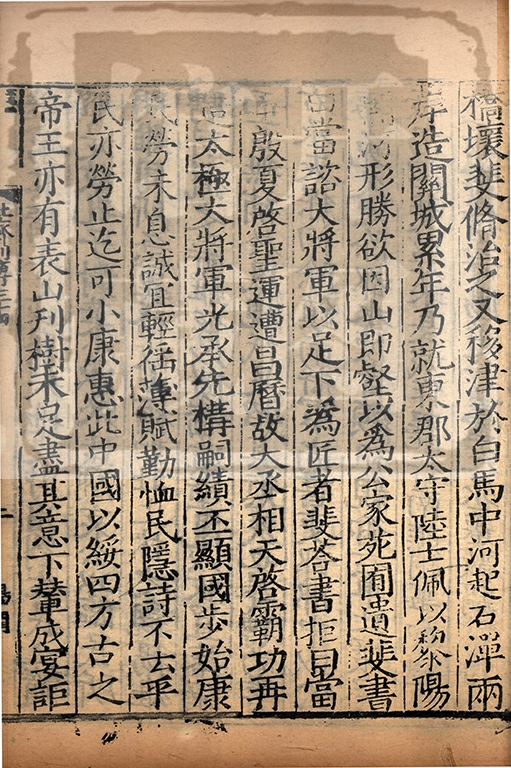 橋壞斐脩治之又移津於白馬中河起石潬兩
岸造關城累年乃就東郡太守陸士佩以黎陽
河形勝欲因山即壑以為公家苑囿遺斐書
曰當諮大將軍以足下為匠者斐荅書拒曰當
殷夏啓聖運遭昌曆故大丞相天啓霸功再
造太極大將軍光承先構嗣績丕顯國步始康
民勞未息誠宜輕徭薄賦勤恤民隱詩不去乎
民亦勞止迄可小康惠此中國以綏四方古之
帝王亦有表山刋樹未足盡其意下輦成宴詎